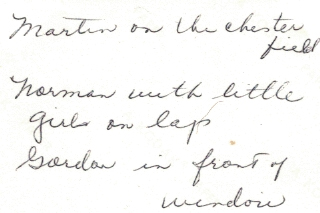 Martin on the chester
field
Norman with little
girl on lap
Gordon in front of
window